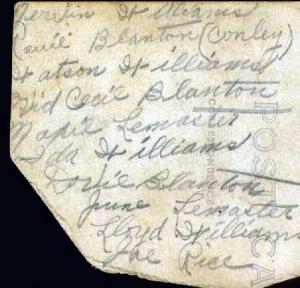 Williams
Blanton (Conley)
Watson Williams
Cecil Blanton
Lemaster
Ida Williams
Blanton
June Lemaster
Lloyd Williams
Joe Rice
POST CA